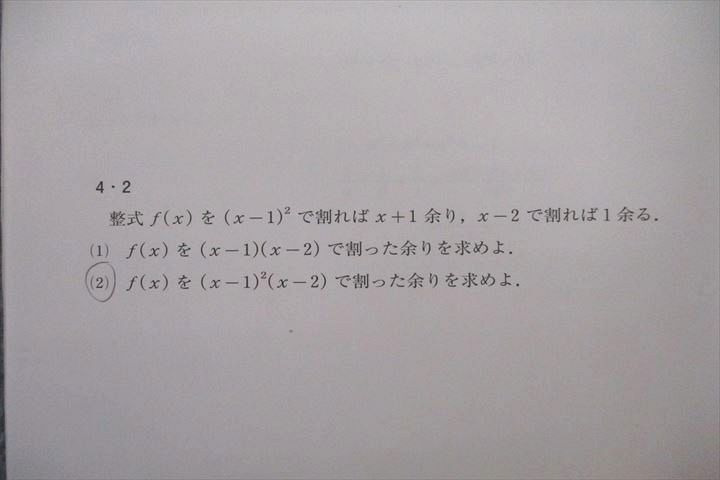 4・2
整式 f(x) を (x−1)² で割れば x+1 余り，x−2 で割れば 1 余る．
(1) f(x) を (x−1)(x−2) で割った余りを求めよ．
(2) f(x) を (x−1)²(x−2) で割った余りを求めよ．